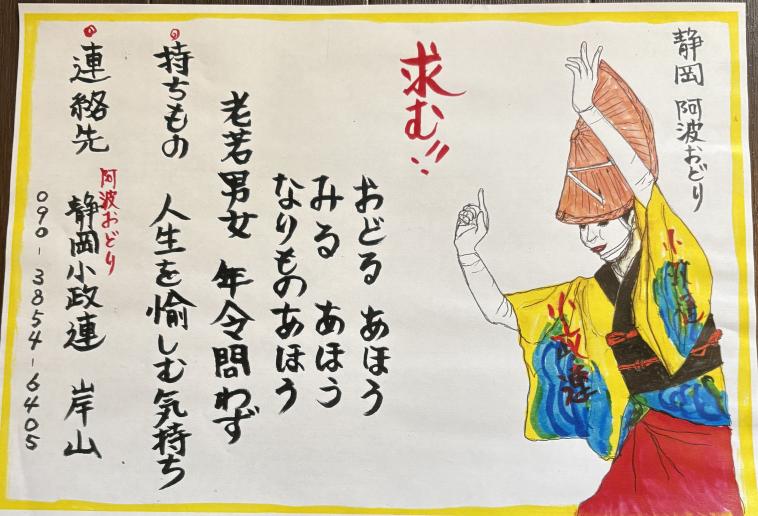 静岡 阿波おどり
求む!!
おどる あほう
みる あほう
なりものあほう
老若男女 年令問わず
持ちもの 人生を愉しむ気持ち
連絡先 阿波おどり 静岡小政連 岸山
090-3854-6405
小政連
小政連